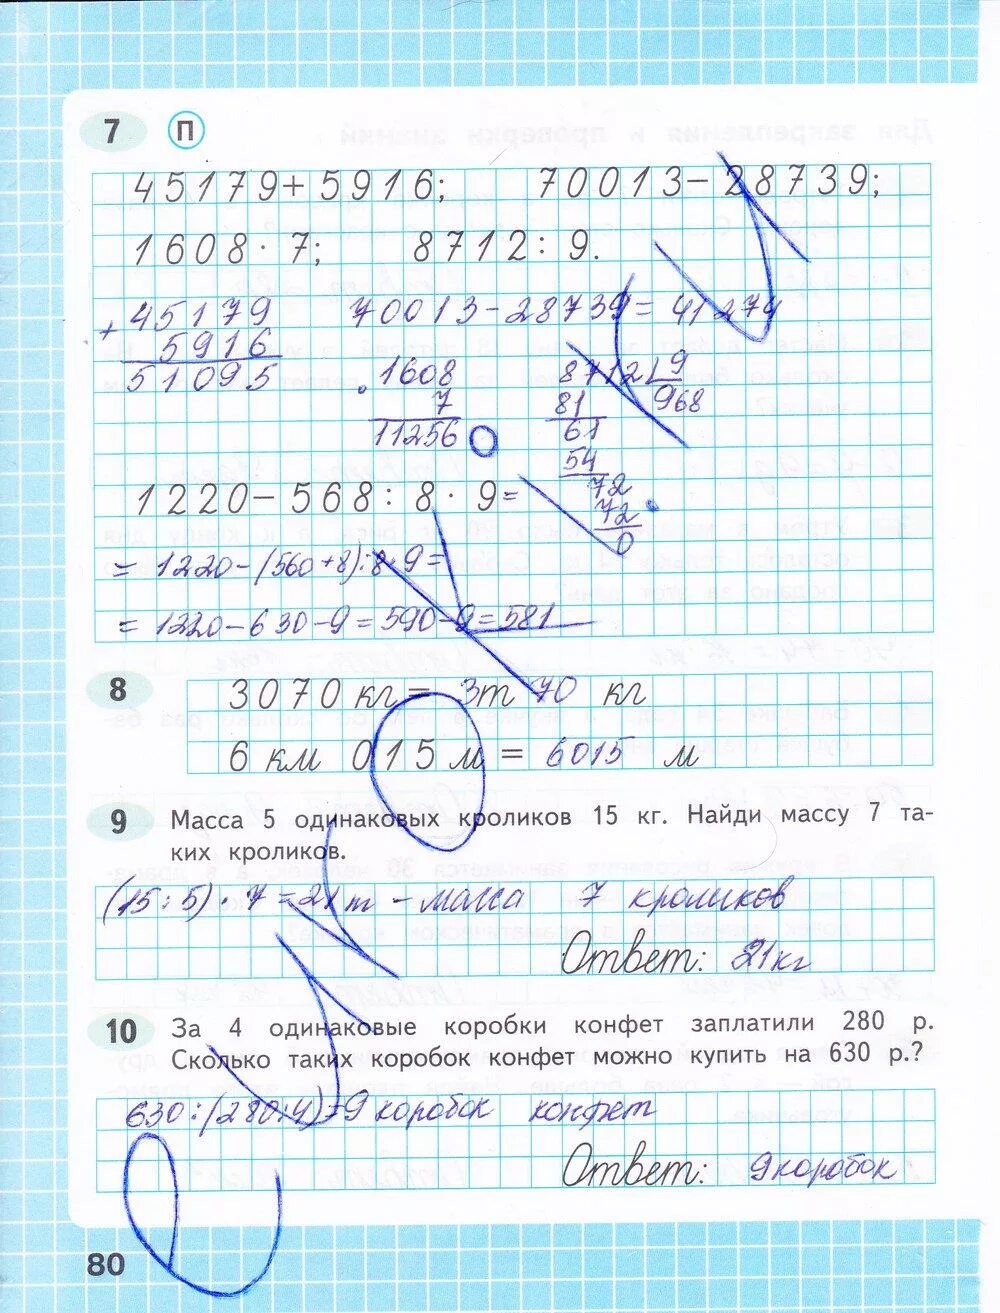 7 П
45179+5916; 70013-28739;
1608·7; 8712:9.
+45179 70013-28739=41274
5916
51095
·1608 8712 9
7 81 968
11256 61
54
1220-568:8·9= 72
72
0
=1220-(560+8):8·9=
=1220-630-9=590-9=581
8 3070 кг= 3т 70 кг
6 км 015 м = 6015 м
9 Масса 5 одинаковых кроликов 15 кг. Найди массу 7 та-
ких кроликов.
(15:5)·7=21т - масса 7 кроликов
Ответ: 21кг
10 За 4 одинаковые коробки конфет заплатили 280 р.
Сколько таких коробок конфет можно купить на 630 р.?
630:(280:4)=9 коробок конфет
Ответ: 9 коробок
80